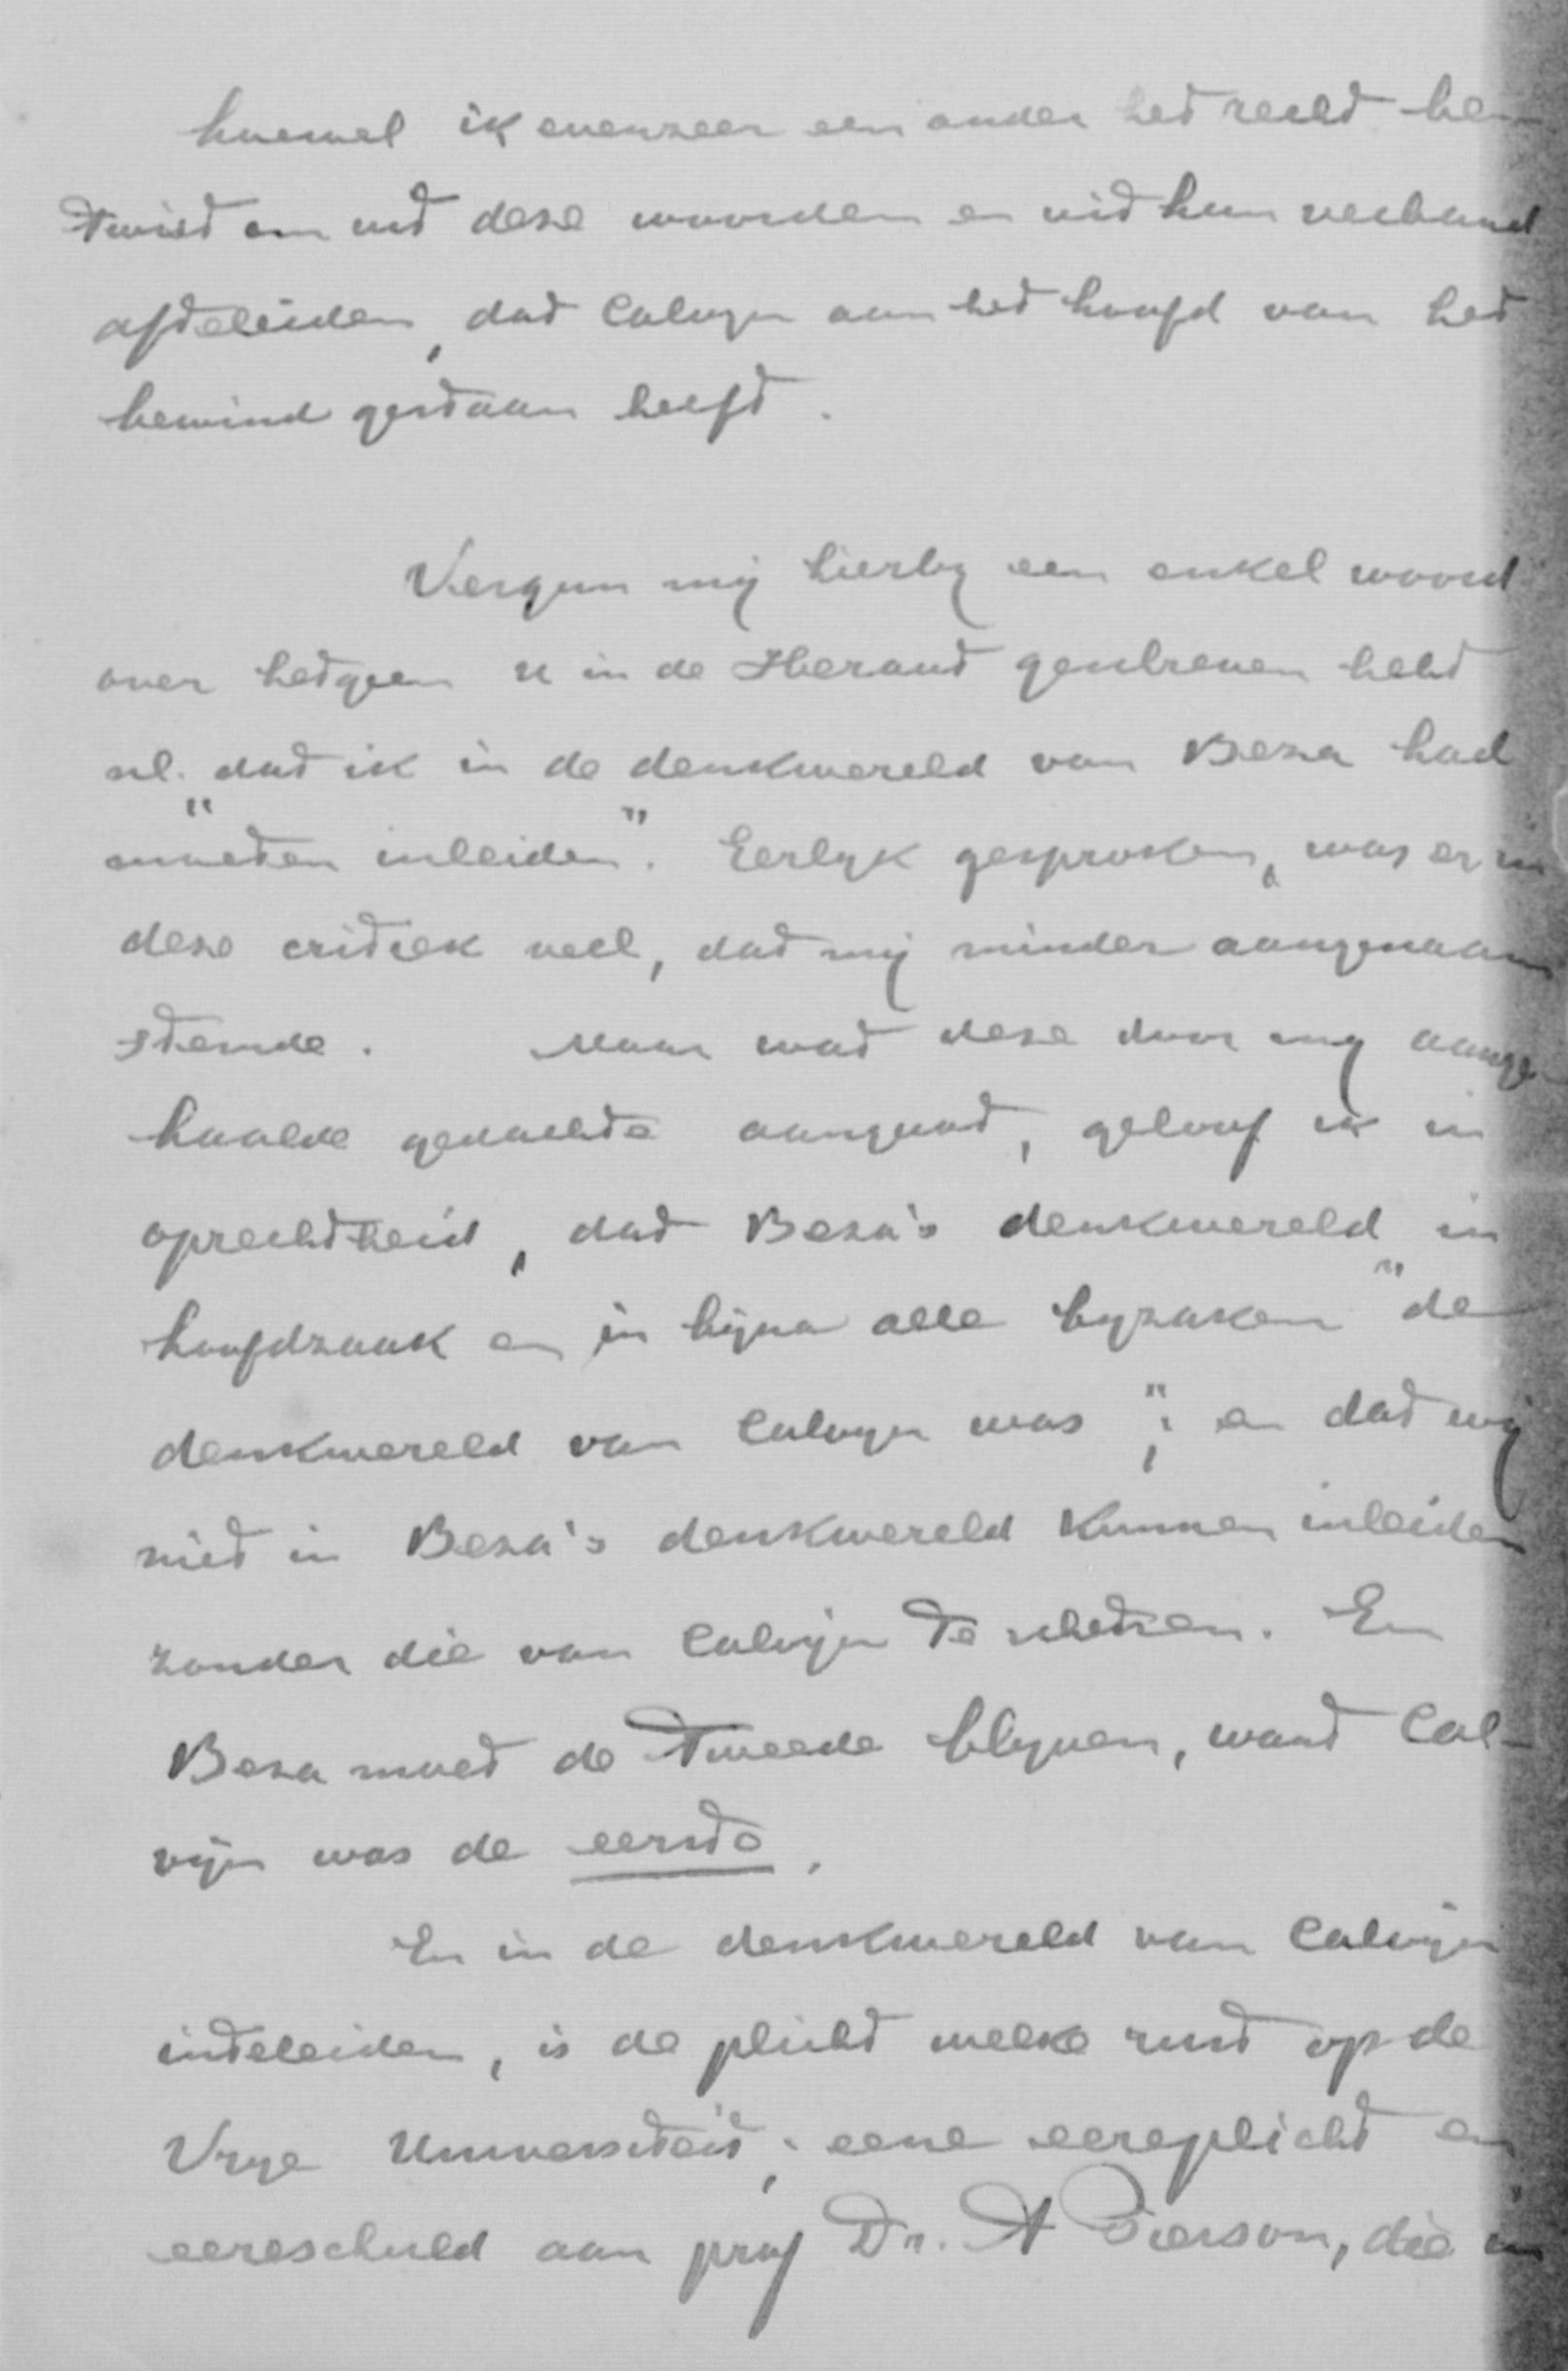 hoewel ik evenzeer een ander het recht be-
twist om uit deze woorden en uit hun verband
afteleiden, dat Calvijn aan het hoofd van het
bewind gestaan heeft.
Vergun mij hierby een enkel woord
over hetgeen u in de Heraut geschreven hebt
nl. dat ik in de denkwereld van Beza had
"moeten inleiden". Eerlyk gesproken, was er in
deze critiek veel, dat mij minder aangenaam
stemde. Maar wat deze door mij aange-
haalde gedachte aangaat, geloof ik in
oprechtheid, dat Beza's denkwereld in
hoofdzaak en in bijna alle byzaken "de
denkwereld van Calvyn was"; en dat wij
niet in Beza's denkwereld kunnen inleiden
zonder die van Calvijn te schetsen. En
Beza moet de tweede blyven, want Cal-
vijn was de eerste.
En in de denkwereld van Calvijn
inteleiden, is de plicht welke rust op de
Vrye Universiteit; eene eereplicht en
eereschuld aan prof Dr. A Pierson, die in